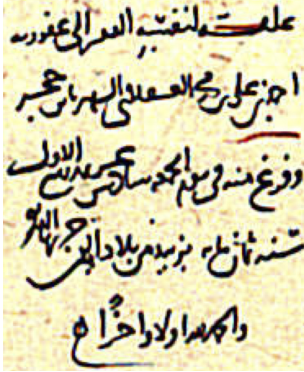 علقه لنفسه الفقير الى عفو ربه
احمد بن علي بن محمد العسقلاني الشهير بابن حجر
وفرغ منه في يوم الجمعة سادس عشر ربيع الاول
سنة ثمان مايه بزبيد من بلاد اليمن حرسها الله
والحمد لله اولا واخرًا